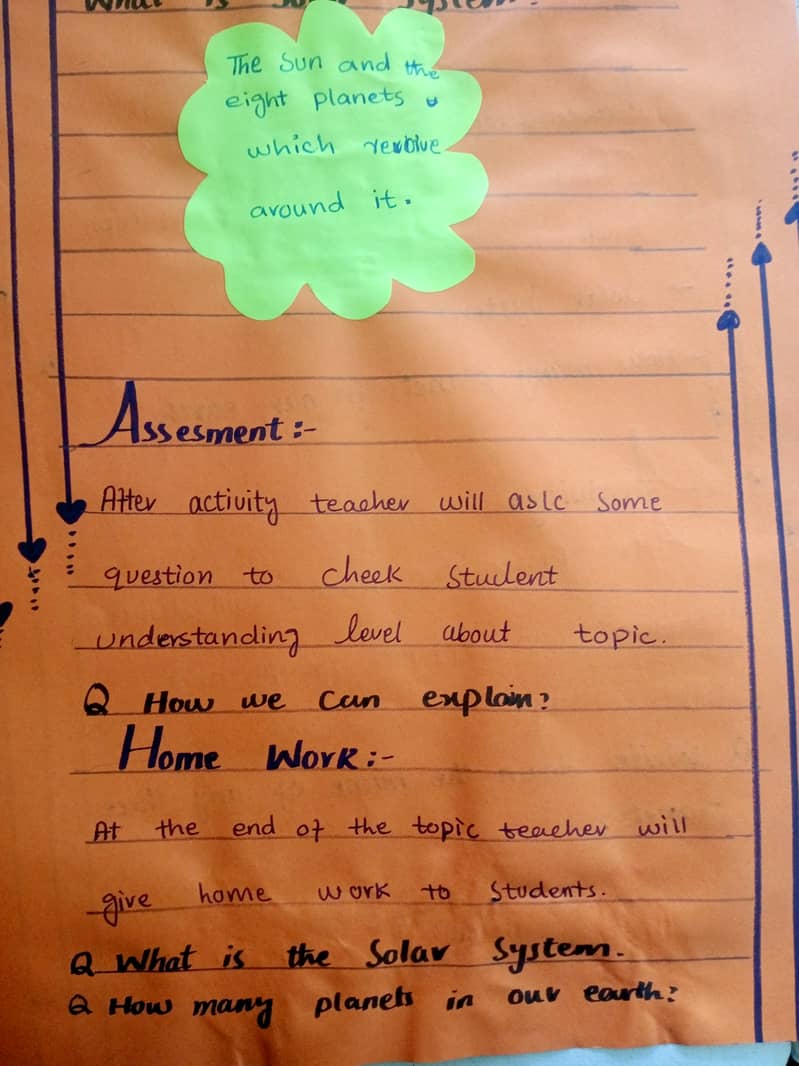 What is Solar System?
The Sun and the
eight planets
which revolve
around it.
Assesment:-
After activity teacher will ask some
question to cheek student
understanding level about topic.
Q How we can explain?
Home Work:-
At the end of the topic teacher will
give home work to students.
Q What is the Solar System.
Q How many planets in our earth?